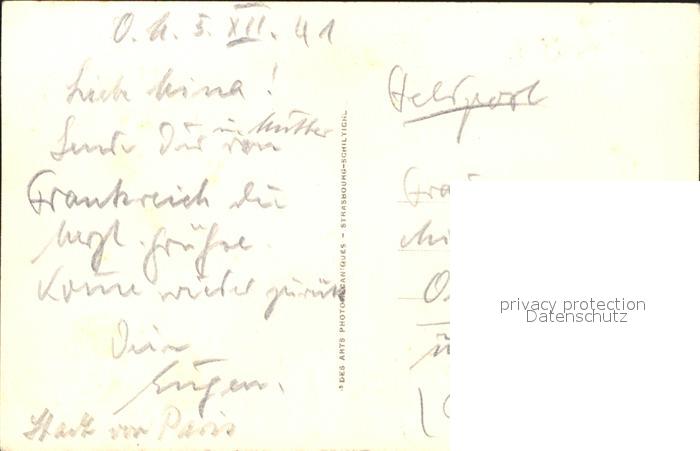 O. U. 5. XII. 41
Liebe Mina!
u. Mutter
Sende Dir von
Frankreich die
herzl. Grüße.
Komme wieder zurück
Dein
Eugen.
Stadt von Paris
DES ARTS PHOTOMÉCANIQUES - STRASBOURG-SCHILTIGH.
Feldpost
privacy protection
Datenschutz